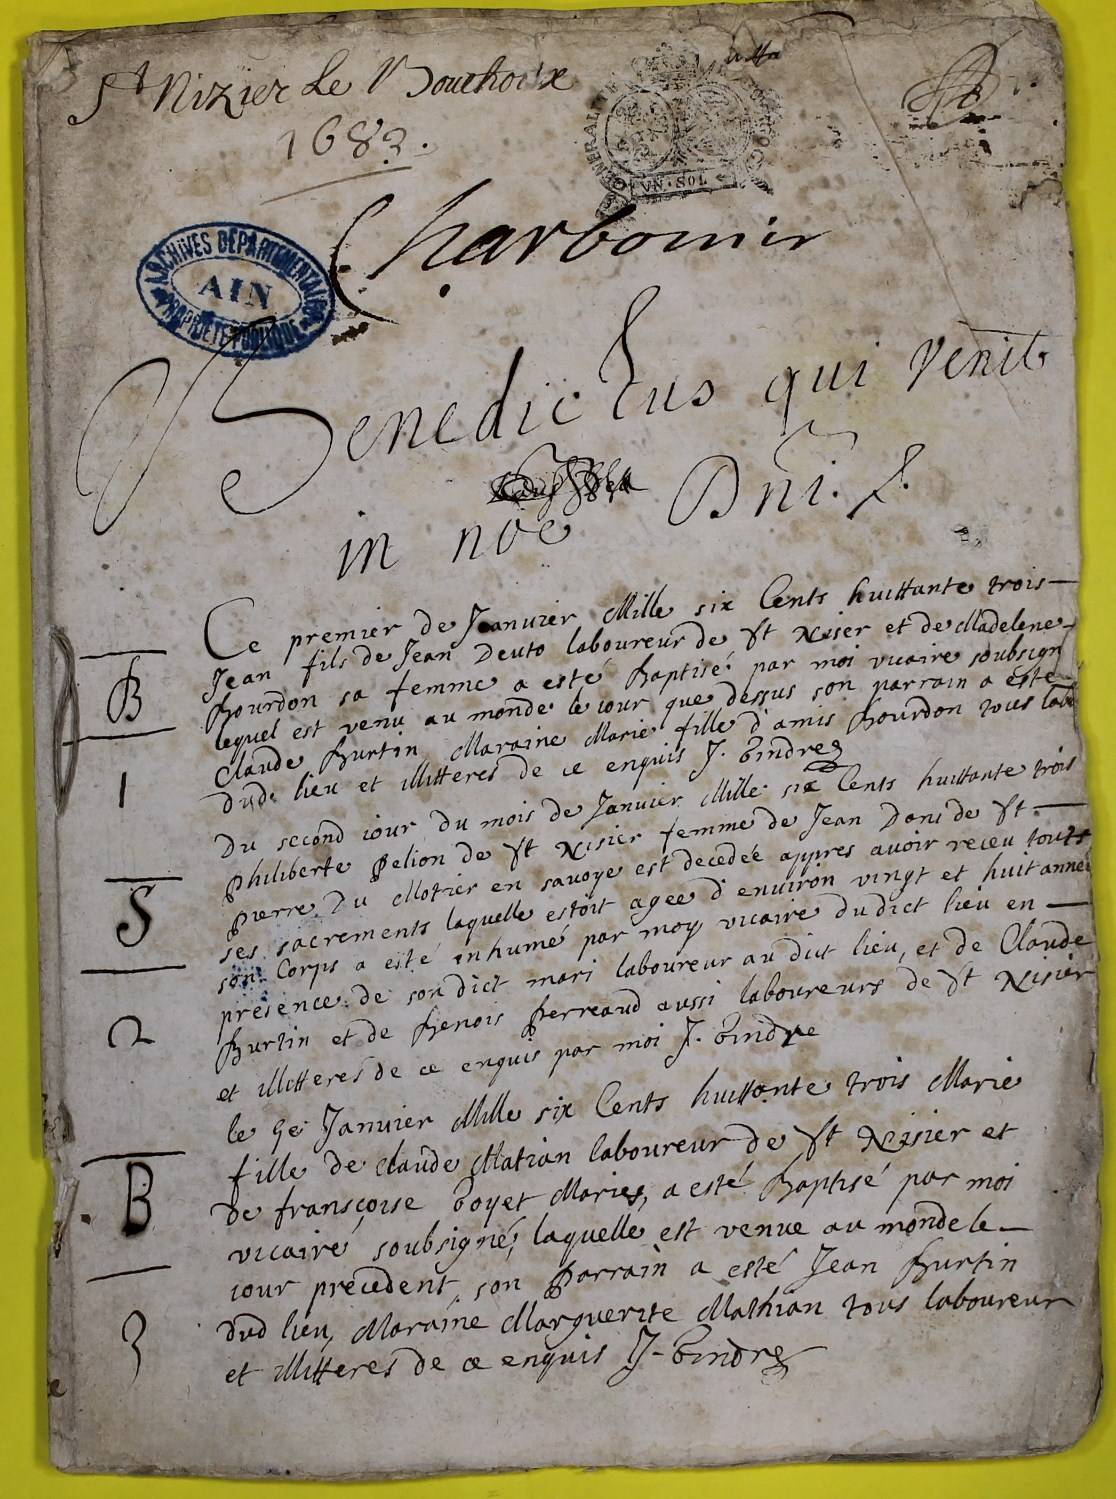 St Nizier Le Bouchoux
1683.
GENERALITE
VN · SOL
Charbonnier
ARCHIVES DEPARTEMENTALES
AIN
PROPRIETE PUBLIQUE
Benedictus qui venit
in noe Dni. &.
Ce premier de Jeanvier Mille six Cents huittante trois
Jean fils de Jean Deuto laboureur de St Nisier et de Madelene
Bourdon sa femme a esté Baptisé par moi vicaire soubsign
lequel est venu au monde le iour que dessus son parrain a esté
Claude Burtin Maraine Marie fille d'amis Bourdon tous lab
dud. lieu et illitteres de ce enquis J. Tindre
B
1
Du second iour du mois de Janvier Mille six Cents huittante trois
Philiberte Pelion de St Nisier femme de Jean Doni de St
Pierre Du Motier en savoye est decedée appres avoir receu touts
ses sacrements laquelle estoit agee d'environ vingt et huit année
son Corps a esté inhumé par moy vicaire dudict lieu en
presence de son dict mari laboureur au dict lieu, et de Claude
Burtin et de Benois Perreaud aussi laboureurs de St Nisier
et illitteres de ce enquis par moi J. Tindre
S
2
le 5e Janvier Mille six Cents huittante trois Marie
fille de Claude Matian laboureur de St Nisier et
de françoise Boyet Maries, a esté Baptisé par moi
vicairé soubsigné, laquelle est venue au monde le
iour precedent, son Parrain a esté Jean Burtin
dud lieu, Maraine Marguerite Mathian tous laboureur
et illitteres de ce enquis J. Tindre
B
3